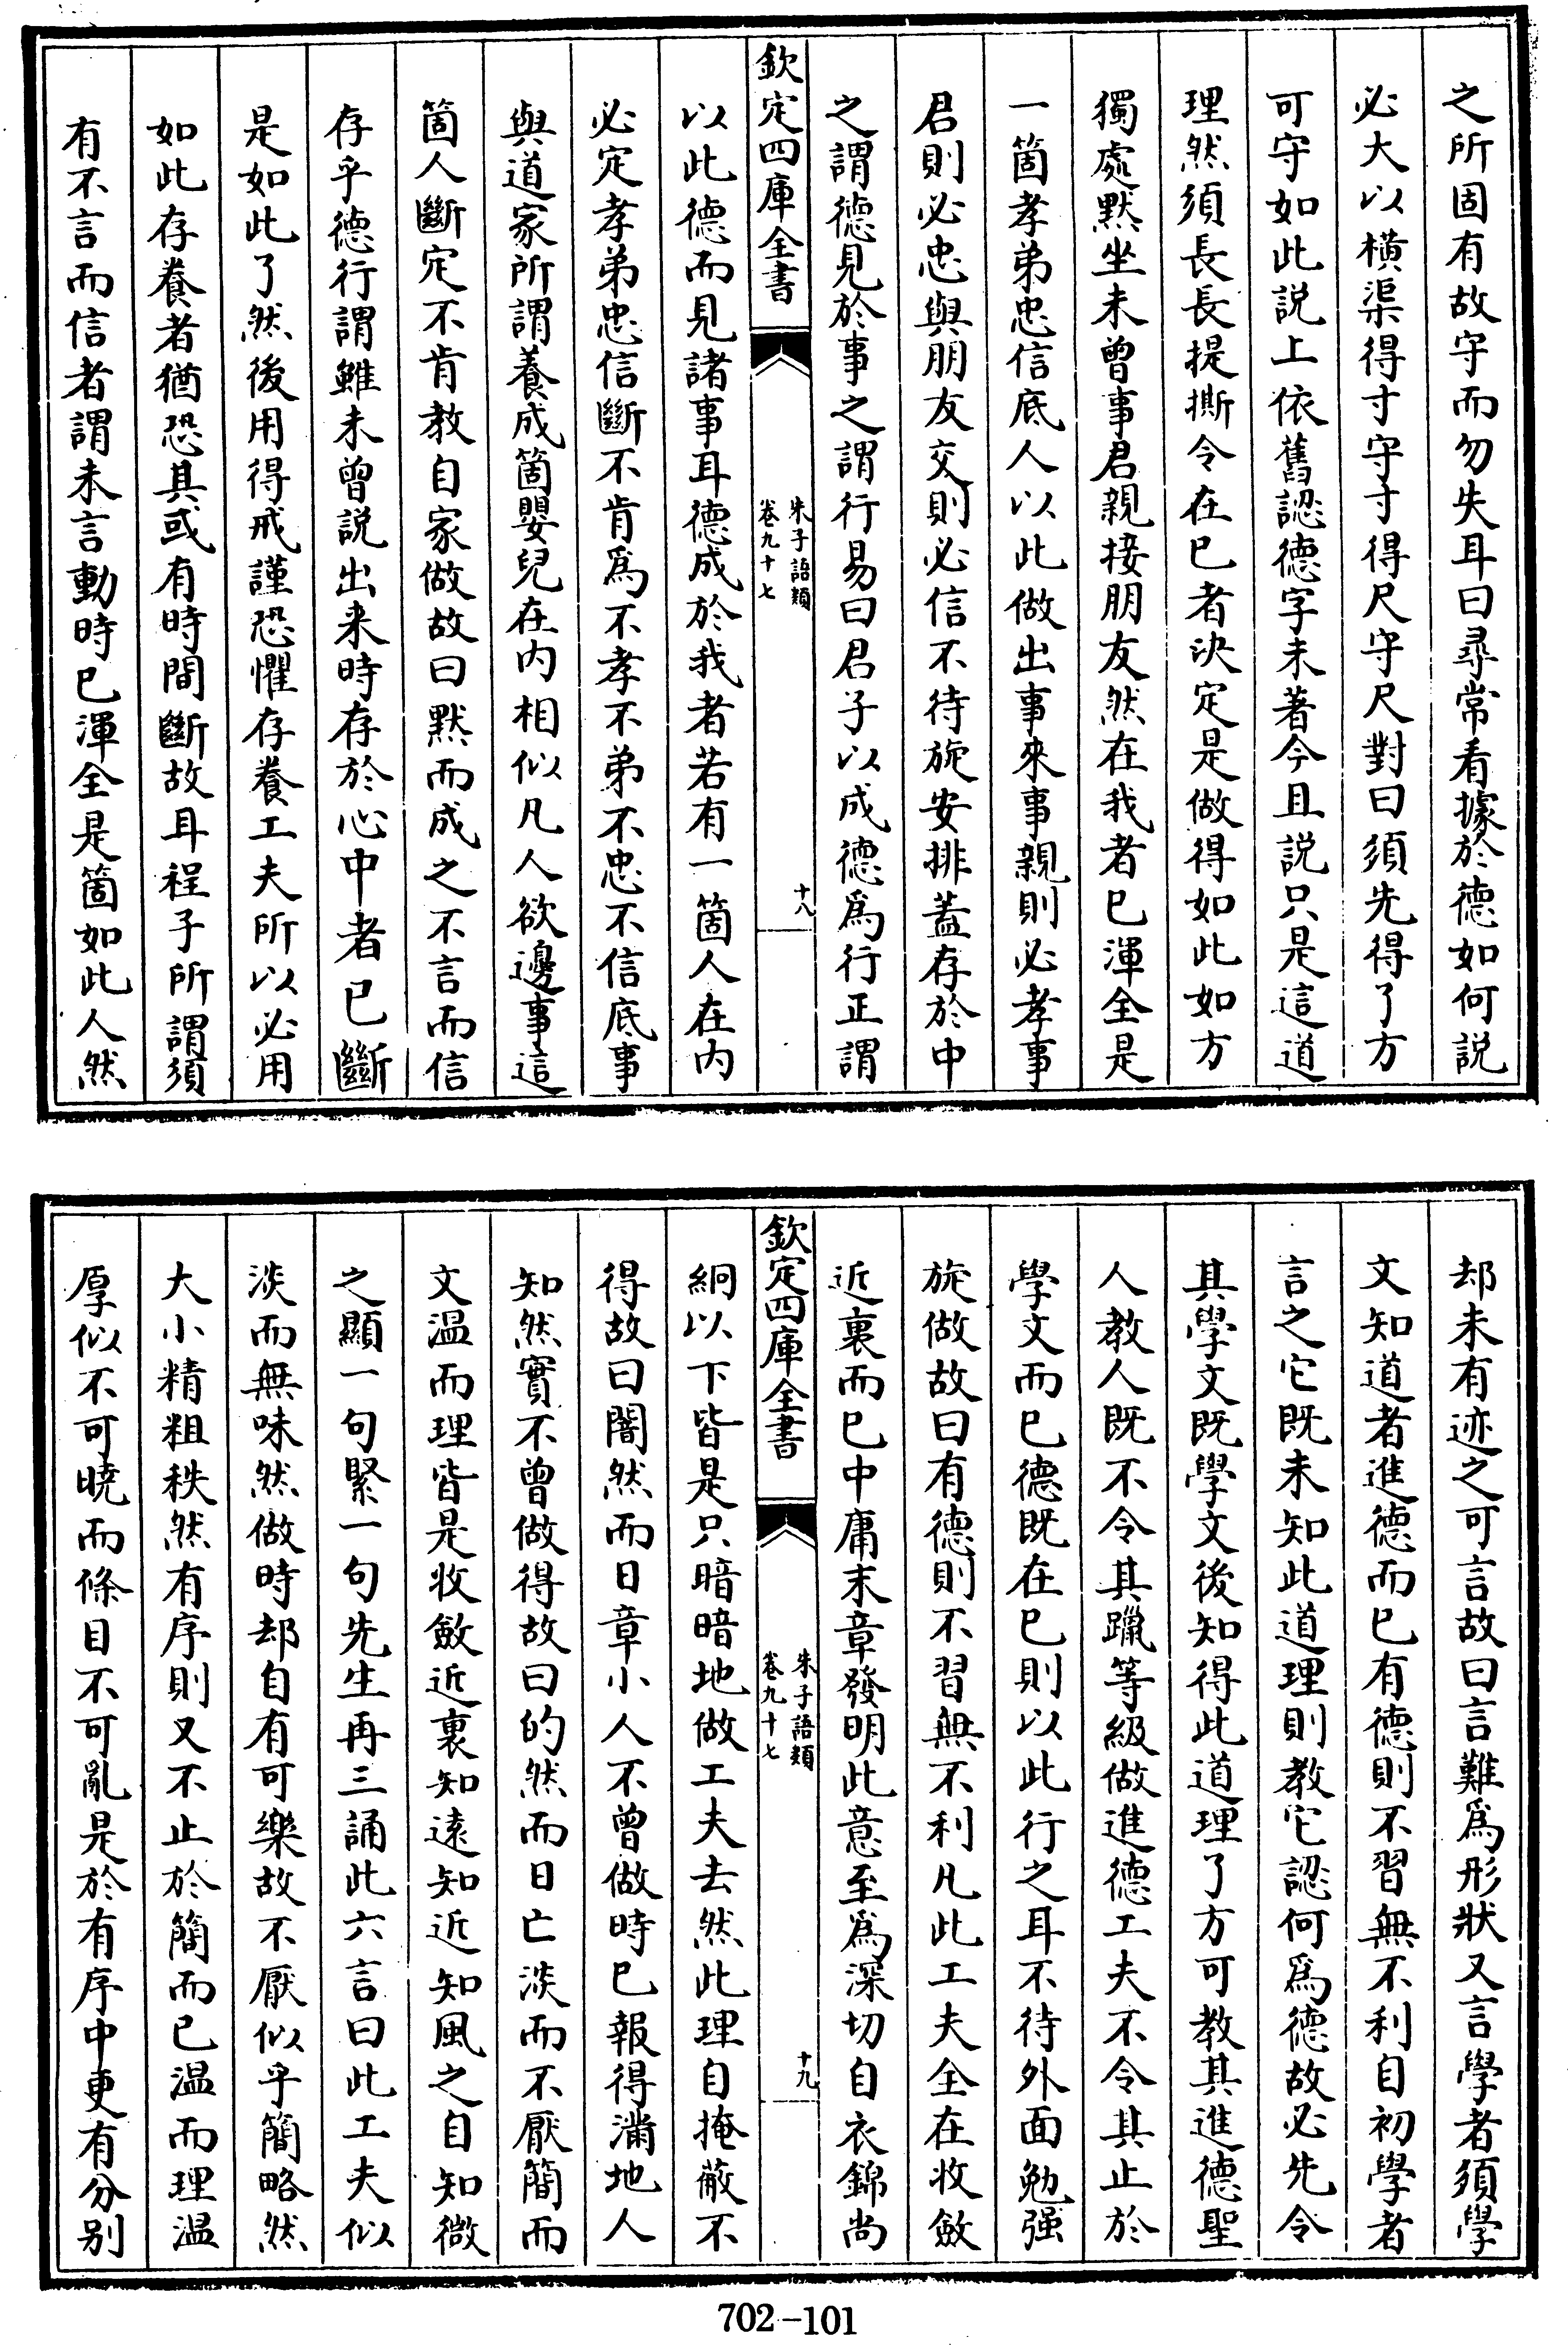 之所固有故守而勿失耳曰尋常看據於德如何説
必大以横渠得寸守寸得尺守尺對曰須先得了方
可守如此説上依舊認德字未著今且説只是這道
理然須長長提撕令在已者決定是做得如此如方
獨處默坐未曾事君親接朋友然在我者已渾全是
一箇孝弟忠信底人以此做出事來事親則必孝事
君則必忠與朋友交則必信不待旋安排蓋存於中
之謂德見於事之謂行易曰君子以成德為行正謂
欽定四庫全書
朱子語類
卷九十七
十八
以此德而見諸事耳德成於我者若有一箇人在内
必定孝弟忠信斷不肯為不孝不弟不忠不信底事
與道家所謂養成箇嬰兒在内相似凡人欲邊事這
箇人斷定不肯教自家做故曰默而成之不言而信
存乎德行謂雖未曾説出来時存於心中者已斷
是如此了然後用得戒謹恐懼存養工夫所以必用
如此存養者猶恐其或有時間斷故耳程子所謂須
有不言而信者謂未言動時已渾全是箇如此人然
却未有迹之可言故曰言難為形狀又言學者須學
文知道者進德而已有德則不習無不利自初學者
言之它既未知此道理則教它認何為德故必先令
其學文既學文後知得此道理了方可教其進德聖
人教人既不令其躐等級做進德工夫不令其止於
學文而已德既在已則以此行之耳不待外面勉强
旋做故曰有德則不習無不利凡此工夫全在收斂
近裏而已中庸末章發明此意至為深切自衣錦尚
欽定四庫全書
朱子語類
卷九十七
十九
絅以下皆是只暗暗地做工夫去然此理自掩蔽不
得故曰闇然而日章小人不曾做時已報得滿地人
知然實不曾做得故曰的然而日亡淡而不厭簡而
文温而理皆是收斂近裏知遠知近知風之自知微
之顯一句緊一句先生再三誦此六言曰此工夫似
淡而無味然做時却自有可樂故不厭似乎簡略然
大小精粗秩然有序則又不止於簡而已温而理温
厚似不可曉而條目不可亂是於有序中更有分别
702-101